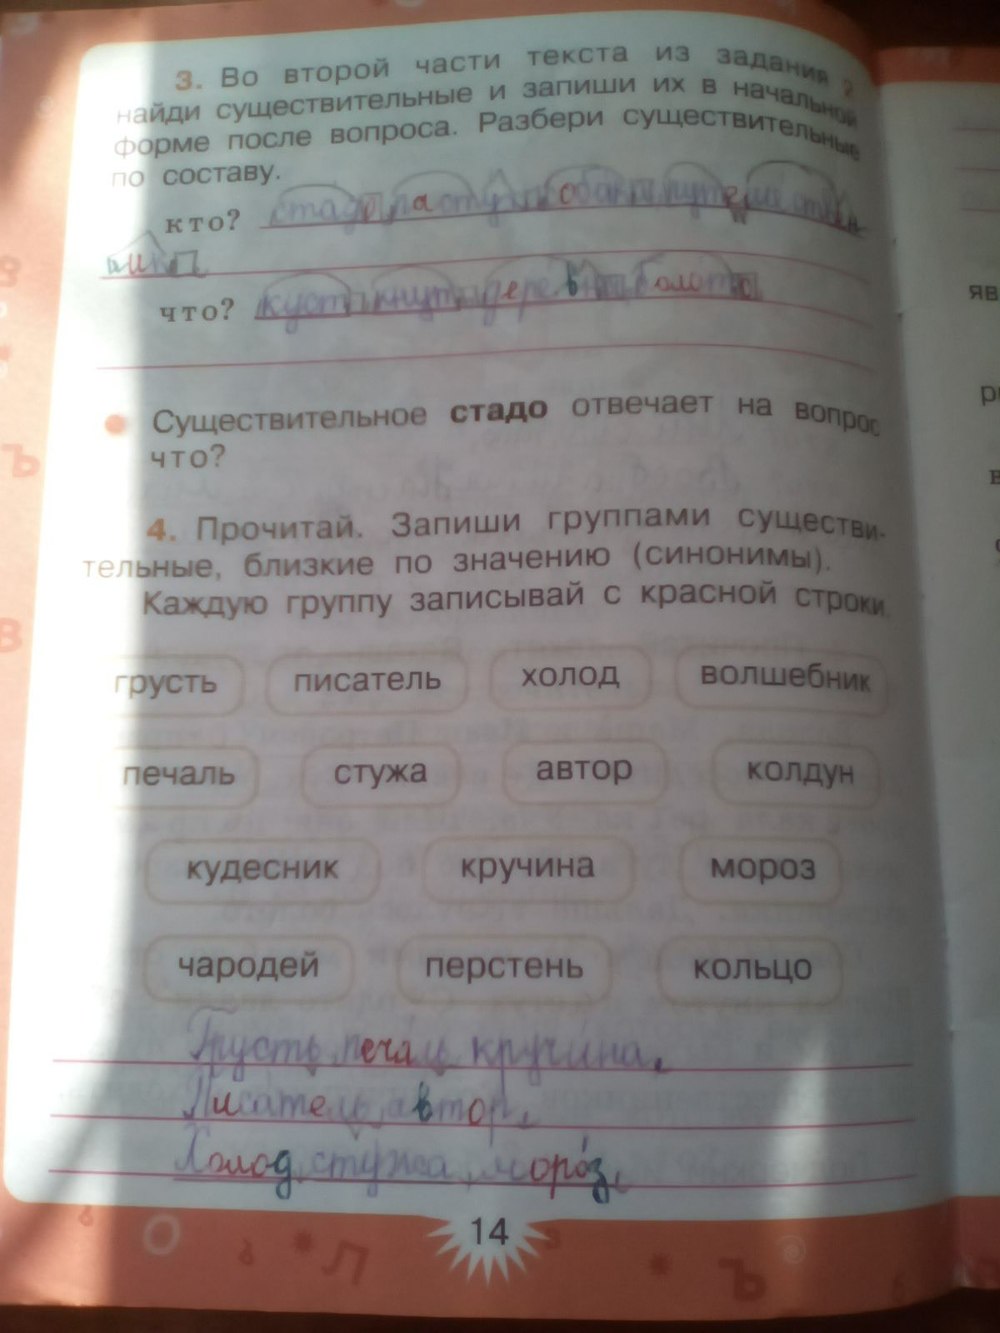 3. Во второй части текста из задания 2
найди существительные и запиши их в начальной
форме после вопроса. Разбери существительные
по составу.
кто? стадо, пастух, собака,
что? куст, кнут, деревня, болото
Существительное стадо отвечает на вопрос
что?
4. Прочитай. Запиши группами существи-
тельные, близкие по значению (синонимы).
Каждую группу записывай с красной строки.
грусть писатель холод волшебник
печаль стужа автор колдун
кудесник кручина мороз
чародей перстень кольцо
Грусть, печаль, кручина.
Писатель, автор.
Холод, стужа, мороз.
14
яв